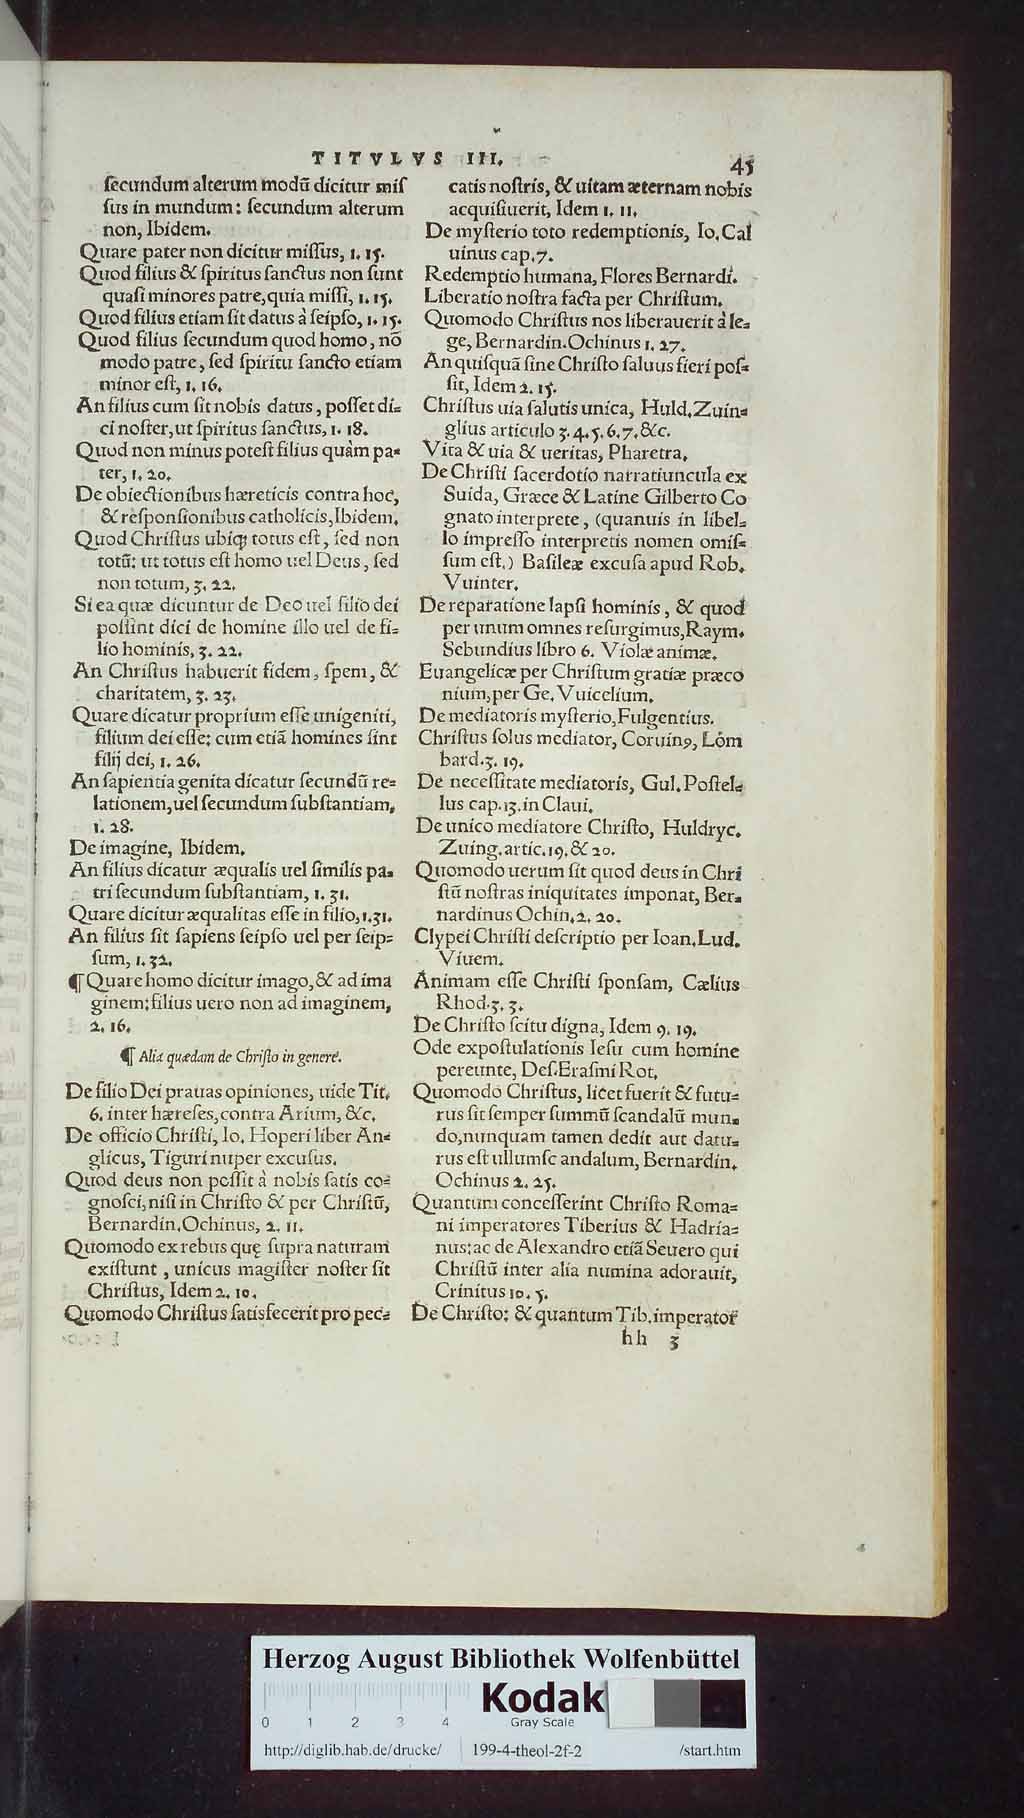 TITVLVS III. 45
secundum alterum modū dicitur mis
sus in mundum: secundum alterum
non, Ibidem.
Quare pater non dicitur missus, 1. 15.
Quod filius & spiritus sanctus non sunt
quasi minores patre, quia missi, 1. 15.
Quod filius etiam sit datus à seipso, 1. 15.
Quod filius secundum quod homo, nō
modo patre, sed spiritu sancto etiam
minor est, 1. 16.
An filius cum sit nobis datus, posset di=
ci noster, ut spiritus sanctus, 1. 18.
Quod non minus potest filius quàm pa=
ter, 1. 20.
De obiectionibus hæreticis contra hoc,
& responsionibus catholicis, Ibidem.
Quod Christus ubiq; totus est, sed non
totū: ut totus est homo uel Deus, sed
non totum, 3. 22.
Si ea quæ dicuntur de Deo uel filio dei
possint dici de homine illo uel de fi=
lio hominis, 3. 22.
An Christus habuerit fidem, spem, &
charitatem, 3. 23.
Quare dicatur proprium esse unigeniti,
filium dei esse: cum etiā homines sint
filij dei, 1. 26.
An sapientia genita dicatur secundū re=
lationem, uel secundum substantiam,
1. 28.
De imagine, Ibidem.
An filius dicatur æqualis uel similis pa=
tri secundum substantiam, 1. 31.
Quare dicitur æqualitas esse in filio, 1. 31.
An filius sit sapiens seipso uel per seip=
sum, 1. 32.
¶ Quare homo dicitur imago, & ad ima
ginem: filius uero non ad imaginem,
2. 16.
¶ Alia quædam de Christo in genere.
De filio Dei prauas opiniones, uide Tit.
6. inter hæreses, contra Arium, &c.
De officio Christi, Io. Hoperi liber An=
glicus, Tiguri nuper excusus.
Quod deus non possit à nobis satis co=
gnosci, nisi in Christo & per Christū,
Bernardin. Ochinus, 2. 11.
Quomodo ex rebus quę supra naturam
existunt, unicus magister noster sit
Christus, Idem 2. 10.
Quomodo Christus satisfecerit pro pec=
catis nostris, & uitam æternam nobis
acquisiuerit, Idem 1. 11.
De mysterio toto redemptionis, Io. Cal
uinus cap. 7.
Redemptio humana, Flores Bernardi.
Liberatio nostra facta per Christum.
Quomodo Christus nos liberauerit à le=
ge, Bernardin. Ochinus 1. 27.
An quisquā sine Christo saluus fieri pos=
sit, Idem 2. 15.
Christus uia salutis unica, Huld. Zuin=
glius articulo 3. 4. 5. 6. 7. &c.
Vita & uia & ueritas, Pharetra.
De Christi sacerdotio narratiuncula ex
Suida, Græce & Latine Gilberto Co
gnato interprete, (quanuis in libel=
lo impresso interpretis nomen omis=
sum est.) Basileæ excusa apud Rob.
Vuinter.
De reparatione lapsi hominis, & quod
per unum omnes resurgimus, Raym.
Sebundius libro 6. Violæ animæ.
Euangelicæ per Christum gratiæ præco
nium, per Ge. Vuicelium.
De mediatoris mysterio, Fulgentius.
Christus solus mediator, Coruinꝰ, Lom
bard. 3. 19.
De necessitate mediatoris, Gul. Postel=
lus cap. 13. in Claui.
De unico mediatore Christo, Huldryc.
Zuing. artic. 19. & 20.
Quomodo uerum sit quod deus in Chri
stū nostras iniquitates imponat, Ber=
nardinus Ochin. 2. 20.
Clypei Christi descriptio per Ioan. Lud.
Viuem.
Animam esse Christi sponsam, Cælius
Rhod. 3. 3.
De Christo scitu digna, Idem 9. 19.
Ode expostulationis Iesu cum homine
pereunte, Des. Erasmi Rot.
Quomodo Christus, licet fuerit & futu=
rus sit semper summū scandalū mun=
do, nunquam tamen dedit aut datu=
rus est ullumsc andalum, Bernardin.
Ochinus 2. 25.
Quantum concesserint Christo Roma=
ni imperatores Tiberius & Hadria=
nus: ac de Alexandro etiā Seuero qui
Christū inter alia numina adorauit,
Crinitus 10. 5.
De Christo: & quantum Tib. imperator
hh 3
Herzog August Bibliothek Wolfenbüttel
0 1 2 3 4
Kodak
Gray Scale
http://diglib.hab.de/drucke/ 199-4-theol-2f-2 /start.htm